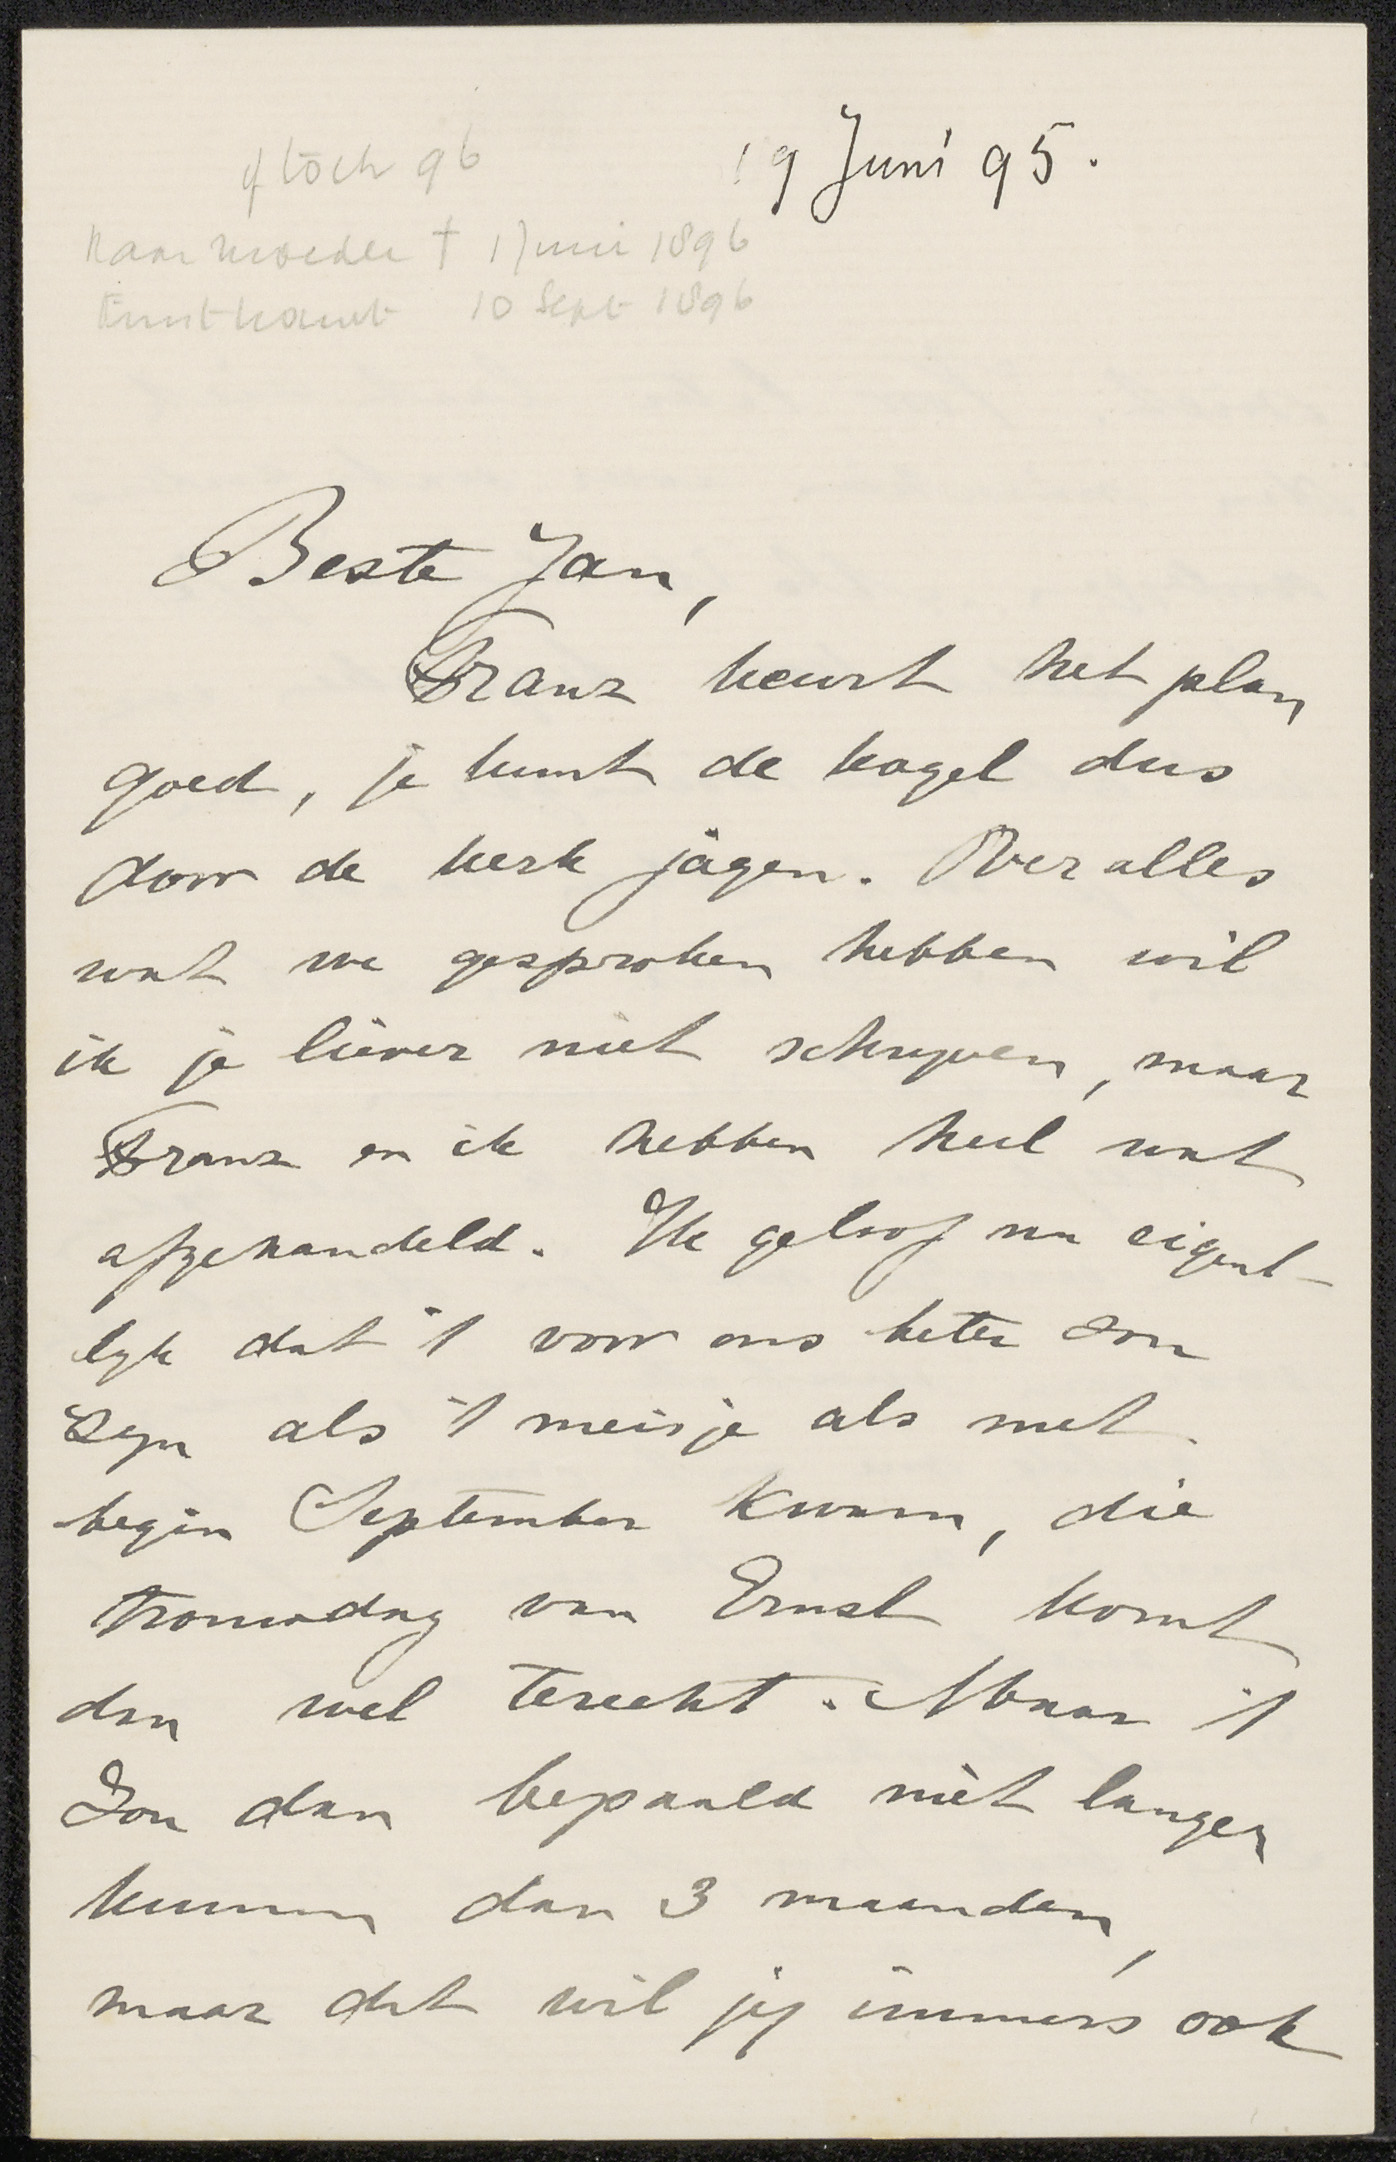 19 Juni 95.
of toch 96
haar moeder † 1 Juni 1896
Ernst trouwt 10 Sept 1896
Beste Jan,
Franz keurt het plan
goed, je kunt de kogel dus
door de kerk jagen. Over alles
wat we gesproken hebben wil
ik je liever niet schrijven, maar
Franz en ik hebben heel wat
afgehandeld. Ik geloof nu eigent-
lyk dat 't voor ons beter zou
zyn als 't meisje als met
begin September kwam, die
trouwdag van Ernst komt
dan wel terecht. Maar 't
Zou dan bepaald niet langer
kunnen dan 3 maanden,
maar dat wil jij immers ook